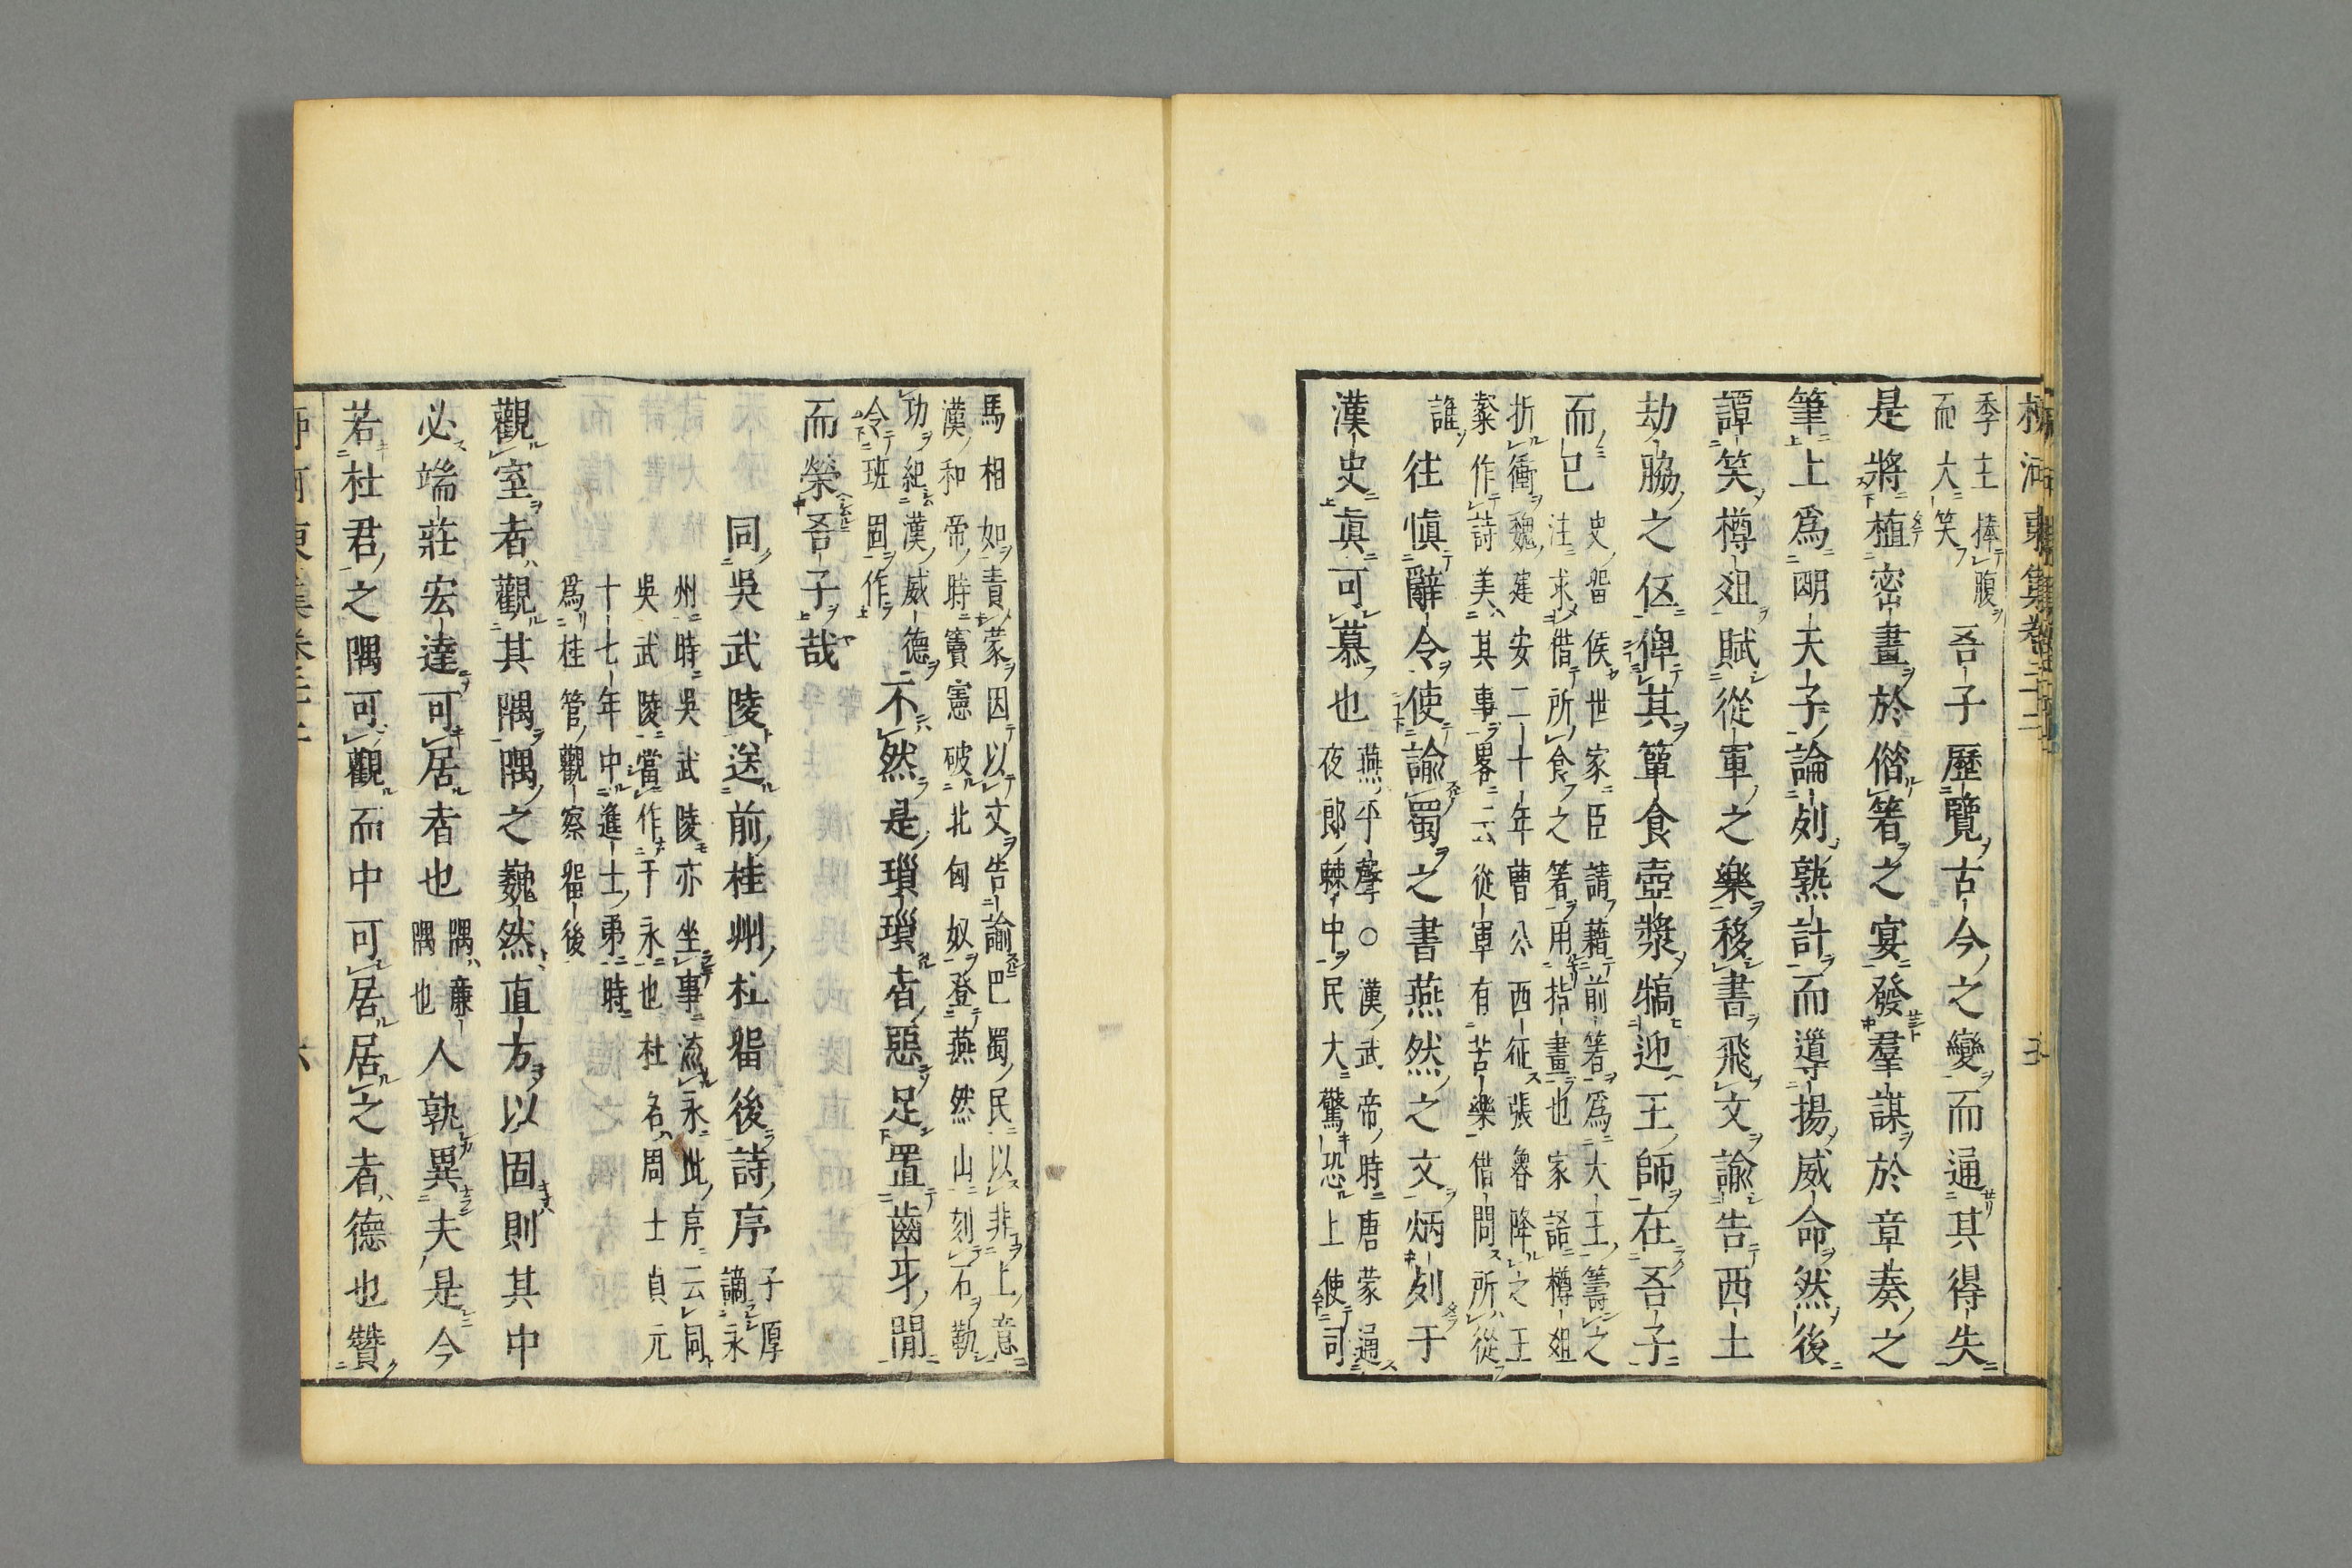 季主捧腹
而大笑
吾子歷覽古今之變而通其得失
是將植密畫於僭箸之宴發羣謀於章奏之
筆上爲明天子論列熟計而導揚威命然後
譚笑樽俎賦從軍之樂移書飛文諭告西土
劫脇之伍俾其簞食壺漿犒迎王師在吾子
而已
史畱侯世家臣請藉前箸爲大王籌之
注求借所食之箸用指畫也家語樽俎
折衝魏建安二十年曹公西征張魯降之王
粲作詩美其事畧云從軍有苦樂借問所從
誰
往愼辭令使諭蜀之書燕然之文炳列于
漢史眞可慕也
燕平聲○漢武帝時唐蒙通
夜郎棘中民大驚恐上使司
馬相如責蒙因以文告諭巴蜀民以非上意
漢和帝時竇憲破北匈奴登燕然山刻石勒
功紀漢威德
令班固作
不然是瑣瑣者惡足置齒牙閒
而榮吾子哉
同吳武陵送前桂州杜畱後詩序
子厚
謫永
州時吳武陵亦坐事流永此序云同
吳武陵當作于永也杜名周士貞元
十七年中進士弟時
爲桂管觀察畱後
觀室者觀其隅隅之巍然直方以固則其中
必端莊宏達可居者也
隅廉
隅也
人孰異夫是今
若杜君之隅可觀而中可居居之者德也贊